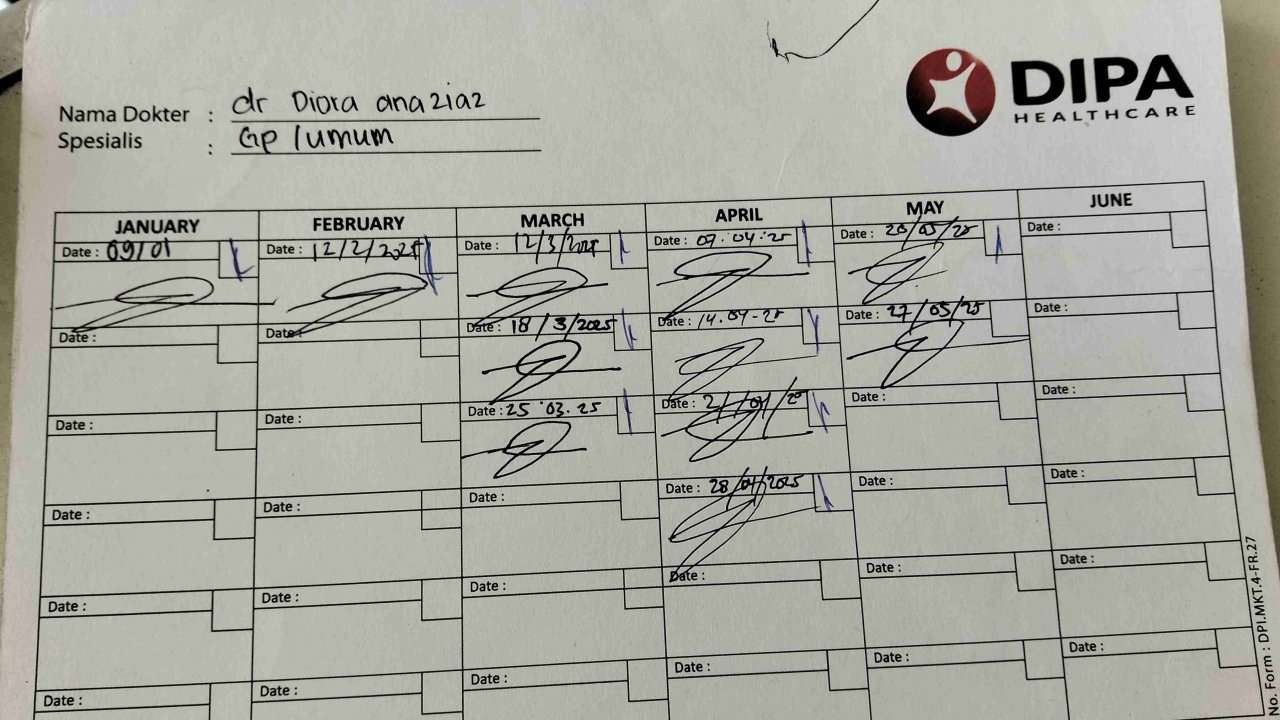 DIPA
HEALTHCARE
Nama Dokter : dr Diora anaziaz
Spesialis : Gp / umum
JANUARY FEBRUARY MARCH APRIL MAY JUNE
Date : 09/01 Date : 12/2/2025 Date : 12/3/2025 Date : 07.04.25 Date : 20/05/25 Date :
Date : Date : Date : 18/3/2025 Date : 14.04-25 Date : 27/05/25 Date :
Date : Date : Date : 25.03.25 Date : 21/04/25 Date : Date :
Date : Date : Date : Date : 28/04/2025 Date : Date :
Date : Date : Date : Date : Date : Date :
Date : Date : Date : Date : Date : Date :
No. Form : DPI.MKT.4-FR.27